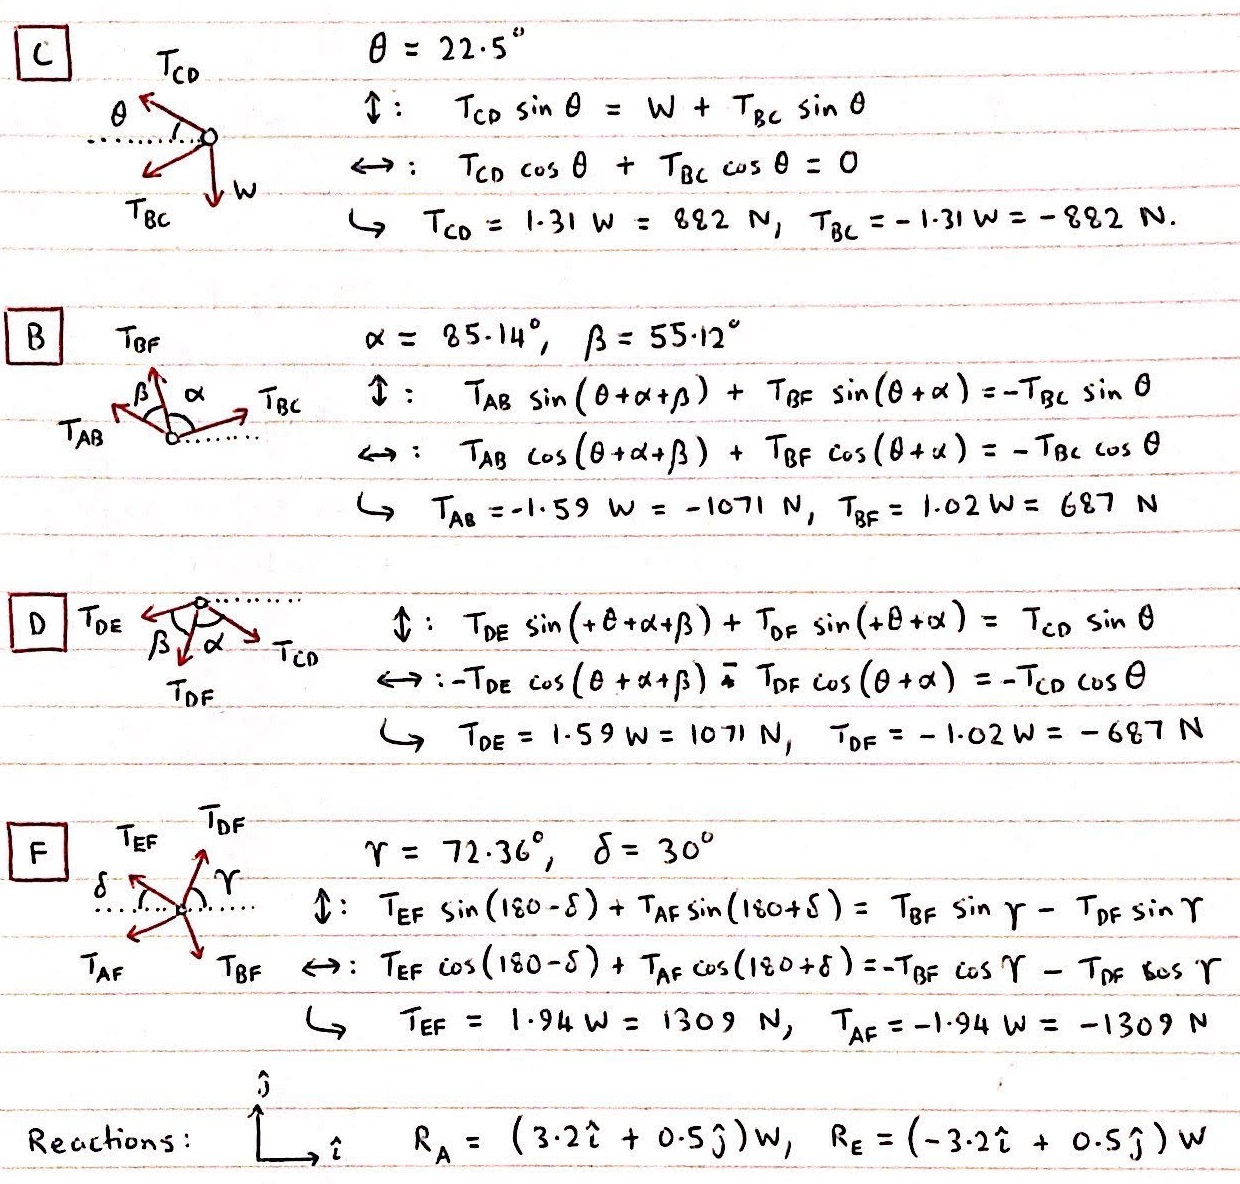 C
T_CD
θ = 22.5°
θ
↕ : T_CD sin θ = W + T_BC sin θ
↔ : T_CD cos θ + T_BC cos θ = 0
W
T_BC
↳ T_CD = 1.31 W = 882 N, T_BC = -1.31 W = -882 N.
B
T_BF
α = 85.14°, β = 55.12°
β α
T_AB
T_BC
↕ : T_AB sin(θ+α+β) + T_BF sin(θ+α) = -T_BC sin θ
↔ : T_AB cos(θ+α+β) + T_BF cos(θ+α) = - T_BC cos θ
↳ T_AB = -1.59 W = -1071 N, T_BF = 1.02 W = 687 N
D
T_DE
β α
T_CD
T_DF
↕ : T_DE sin(+θ+α+β) + T_DF sin(+θ+α) = T_CD sin θ
↔ : -T_DE cos(θ+α+β) - T_DF cos(θ+α) = -T_CD cos θ
↳ T_DE = 1.59 W = 1071 N, T_DF = -1.02 W = -687 N
F
T_EF
T_DF
γ = 72.36°, δ = 30°
δ γ
T_AF
T_BF
↕ : T_EF sin(180-δ) + T_AF sin(180+δ) = T_BF sin γ - T_DF sin γ
↔ : T_EF cos(180-δ) + T_AF cos(180+δ) = -T_BF cos γ - T_DF cos γ
↳ T_EF = 1.94 W = 1309 N, T_AF = -1.94 W = -1309 N
Reactions: ĵ î R_A = (3.2î + 0.5ĵ)W, R_E = (-3.2î + 0.5ĵ)W